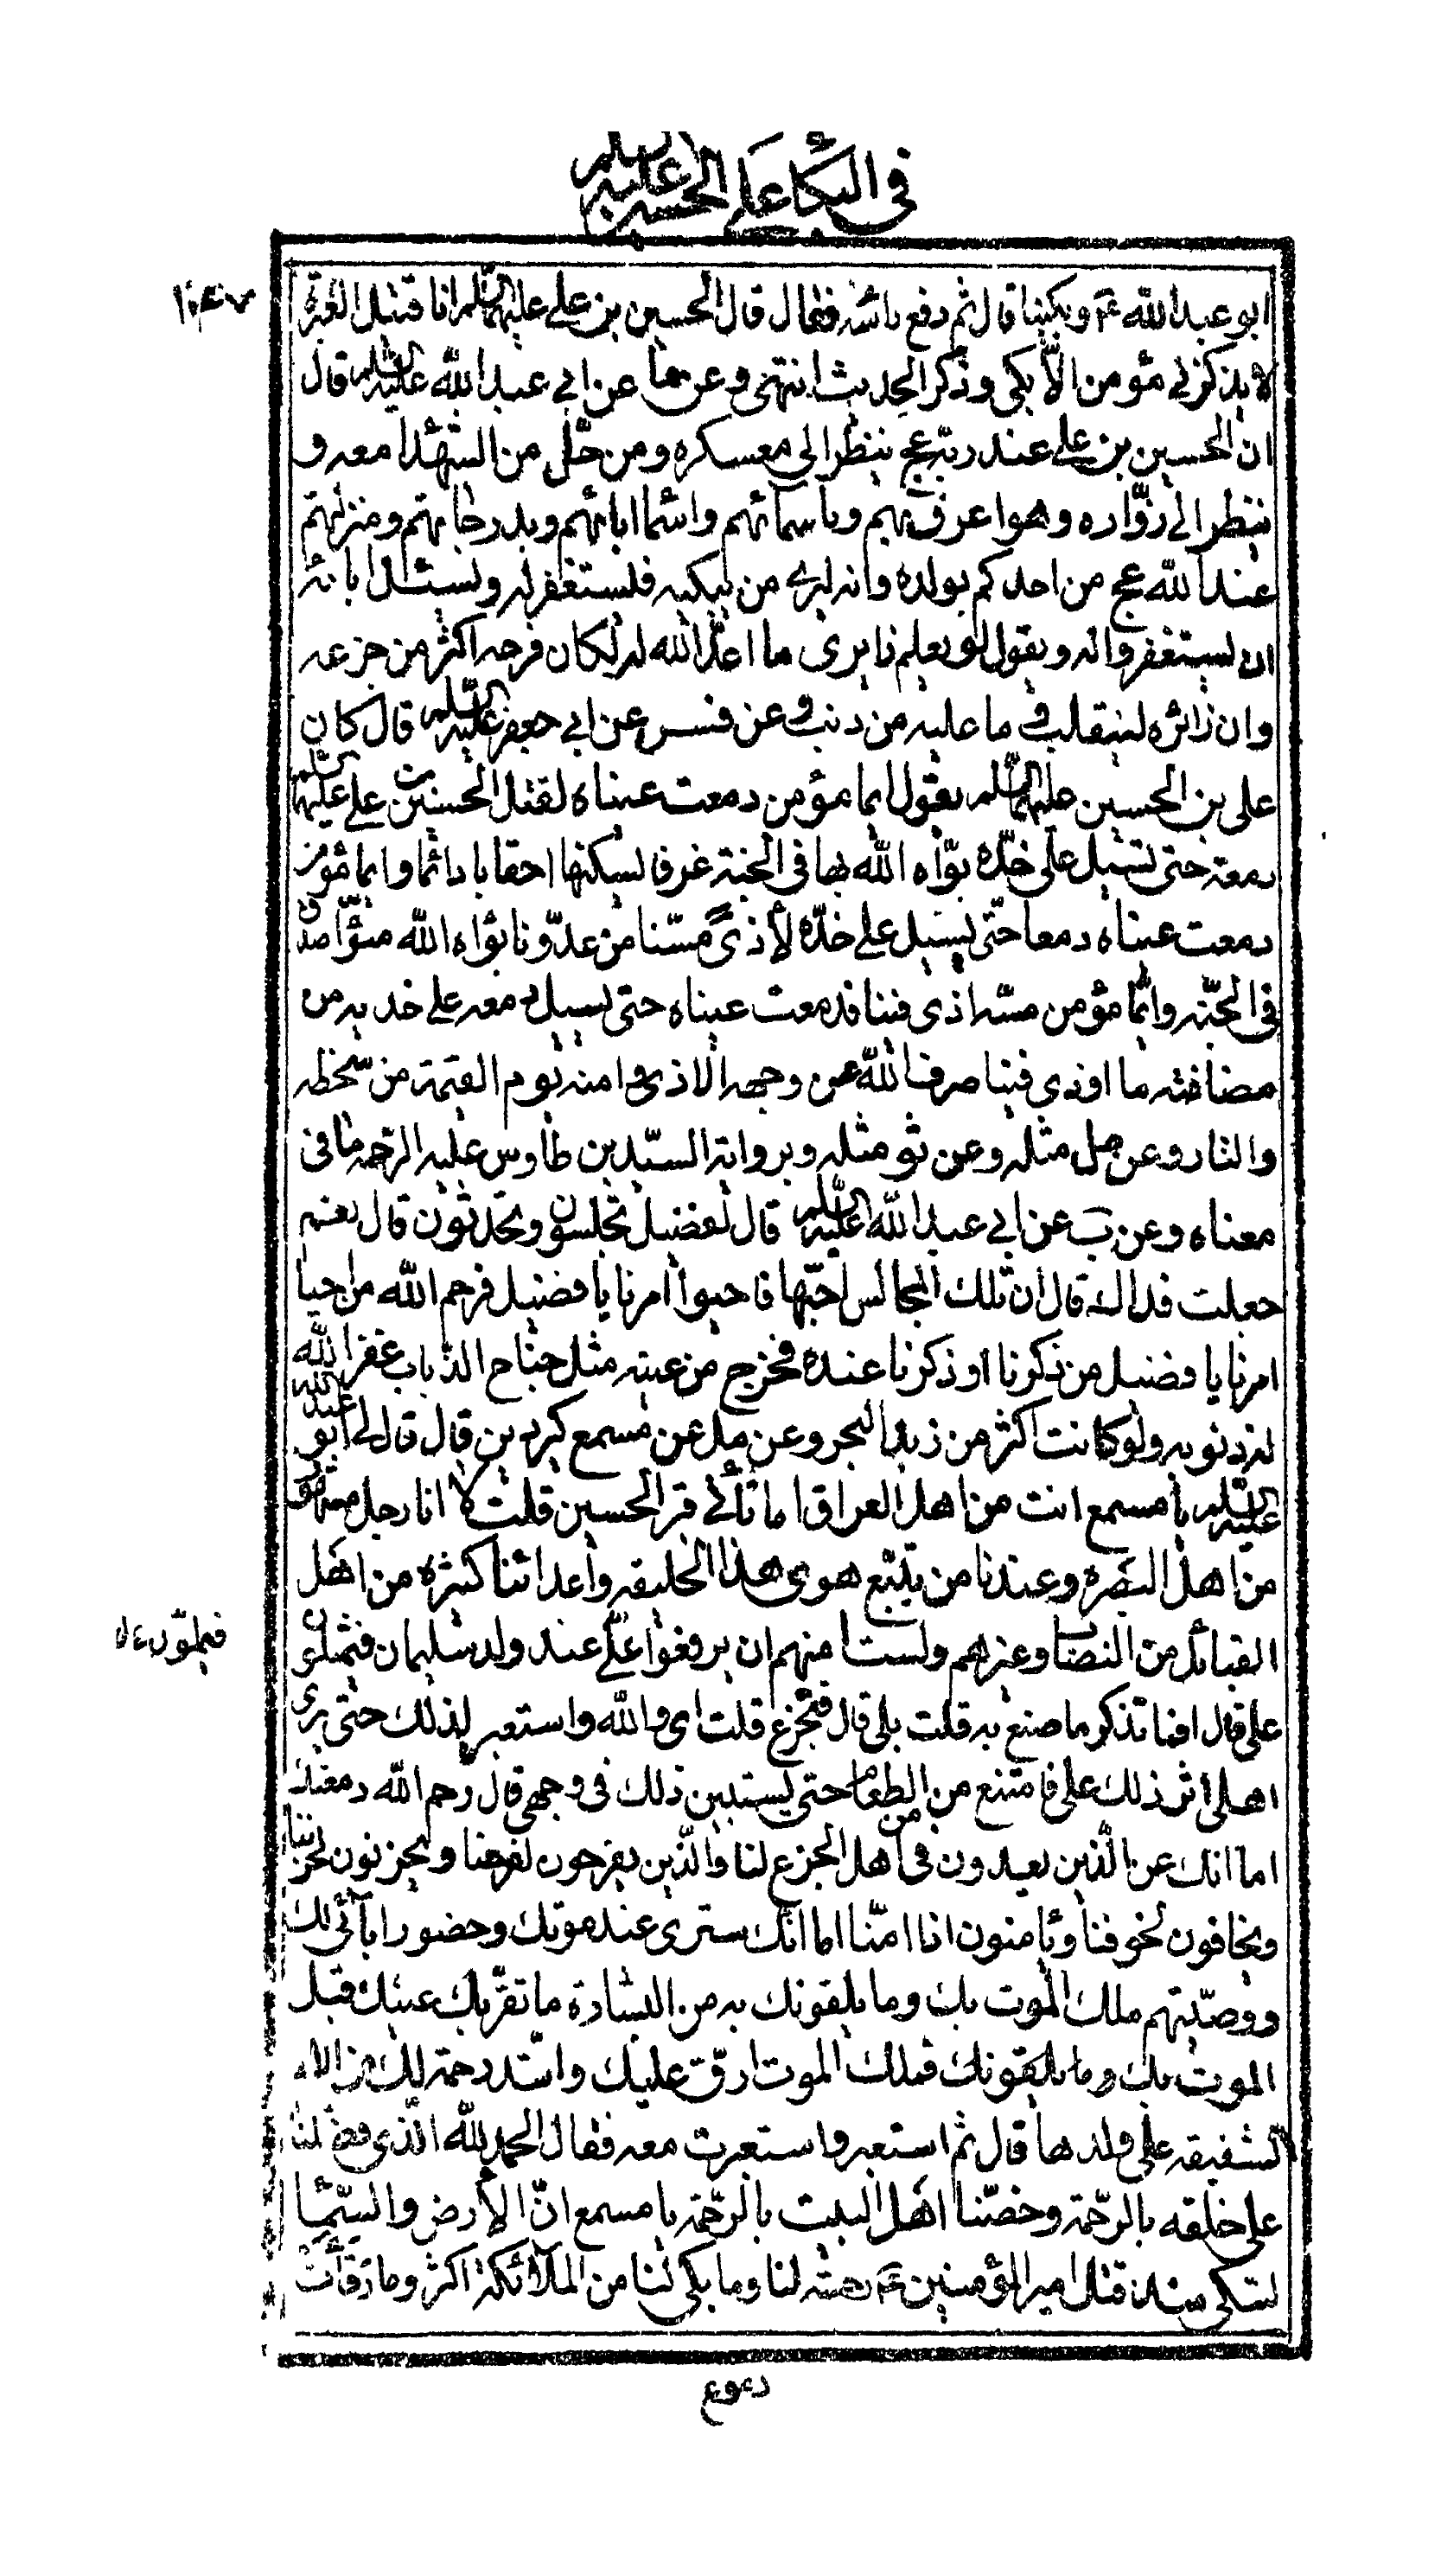 في البكاء على الحسين عليه السلم
ابو عبد الله ع وبكينا قال ثم رفع راسه فقال قال الحسين بن علي عليهما السلم انا قتيل العبرة
لا يذكرني مؤمن الّا بكى وذكر الحديث انتهى وعنهما عن ابي عبد الله عليه السلم قال
ان الحسين بن علي عند ربه عج ينظر الى معسكره ومن حلّ من الشهداء معه و
ينظر الى زوّاره وهو اعرف بهم وباسمائهم واسماء ابائهم وبدرجاتهم ومنزلتهم
عند الله عج من احدكم بولده وانه ليرى من يبكيه فيستغفر له ويسئل ابائه
ان يستغفروا له ويقول لو يعلم زايري ما اعدّ الله له لكان فرحه اكثر من جزعه
وان زائره لينقلب و ما عليه من ذنب وعن فس عن ابي جعفر عليه السلم قال كان
علي بن الحسين عليهما السلم يقول ايما مؤمن دمعت عيناه لقتل الحسين بن علي عليهما السلم
دمعة حتى تسيل على خدّه بوّاه الله بها في الجنة غرفا يسكنها احقابا دائما وايما مؤمن
دمعت عيناه دمعا حتّى يسيل على خدّه لأذىً مسّنا من عدوّنا بوّاه الله مبوّأ صدق
في الجنّه وايّما مؤمن مسّه اذى فينا فدمعت عيناه حتى يسيل دمعه على خديه من
مضاضه ما اوذي فينا صرف الله عن وجهه الاذى وامنه يوم القيمة من سخطه
والنار وعن مل مثله وعن ثو مثله وبرواية السيّد بن طاوس عليه الرحمه ما في
معناه وعن ب عن ابي عبد الله عليه السلم قال لفضيل تجلسون وتحدثون قال نعم
جعلت فداك قال ان تلك المجالس احبّها فاحيوا امرنا يا فضيل فرحم الله من احيا
امرنا يا فضيل من ذكرنا او ذكرنا عنده فخرج من عينه مثل جناح الذباب غفر الله
له ذنوبه ولو كانت اكثر من زبد البحر وعن مل عن مسمع كردين قال قال لي ابو عبد الله
عليه السلم يا مسمع انت من اهل العراق اما تأتي قبر الحسين قلت لا انا رجل مشهور
من اهل البصره وعندنا من يتبع هوى هذا الخليفه واعدائنا كثيره من اهل
القبائل من النصاب وغيرهم ولست امنهم ان يرفعوا علَيّ عند ولد سليمان فيمثلون
علي قال افما تذكر ما صنع به قلت بلى قال فتجزع قلت اى والله واستعبر لذلك حتى يرى
اهلي اثر ذلك علي فامتنع من الطعام حتى يستبين ذلك في وجهي قال رحم الله دمعتك
اما انك من الذين يعدون في اهل الجزع لنا والّذين يفرحون لفرحنا ويحزنون لحزننا
ويخافون لخوفنا ويأمنون اذا امنّا اما انّك سترى عند موتك وحضور ابائي لك
ووصيّتهم ملك الموت بك وما يلقونك به من البشارة ما تقرّ به عينك قبل
الموت بك وما يلقونك فملك الموت ارقّ عليك واشد رحمة لك من الام
الشفيقه على ولدها قال ثم استعبر واستعبرت معه فقال الحمد لله الّذي فضلنا
على خلقه بالرحّمة وخصّنا اهل البيت بالرحّمة يا مسمع انّ الأرض والسّماء
لتبكي منذ قتل امير المؤمنين ع رحمة لنا وما بكى لنا من الملائكة اكثر وما رقأت
فيميلون خ ل
دموع